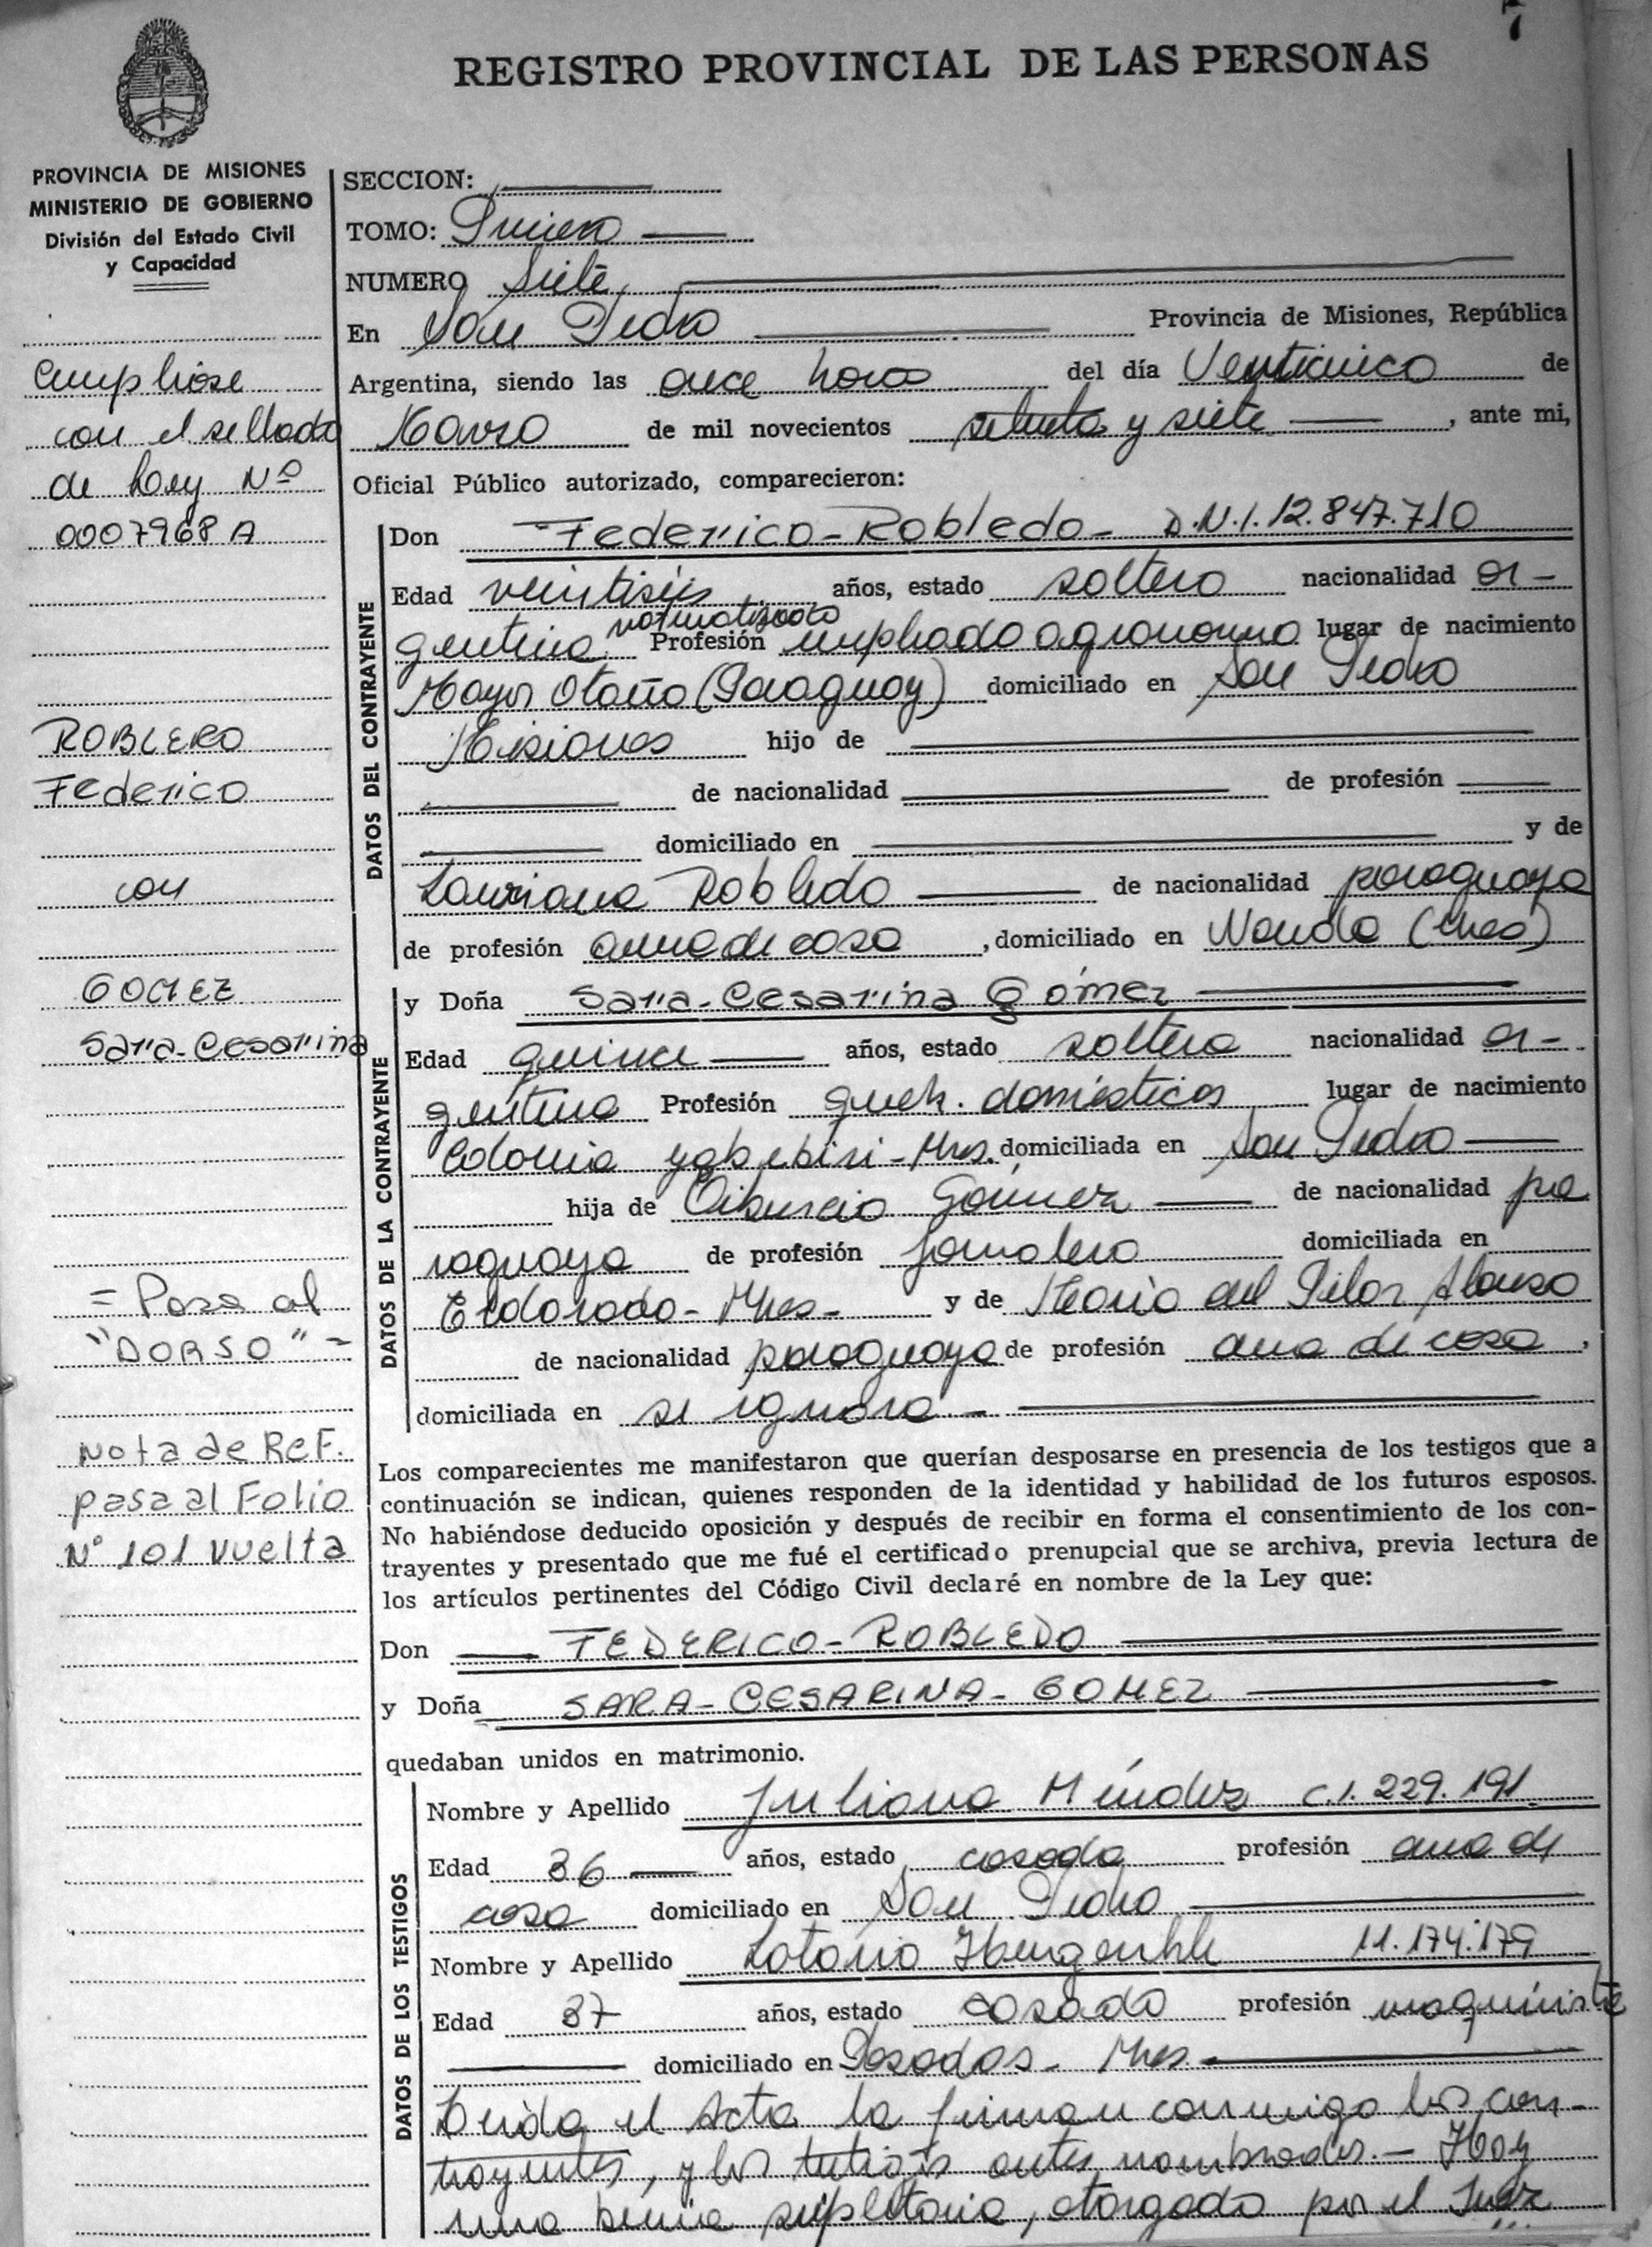 7
REGISTRO PROVINCIAL DE LAS PERSONAS
PROVINCIA DE MISIONES
MINISTERIO DE GOBIERNO
División del Estado Civil
y Capacidad
Cumpliose
con el sellado
de Ley Nº
0007968 A
ROBLERO
Federico
con
GOMEZ
Sara-Cesarina
= Pasa al
"DORSO" =
Nota de Ref.
pasa al Folio
N° 101 vuelta
SECCION:
TOMO: Primero
NUMERO Siete
En San Pedro Provincia de Misiones, República
Argentina, siendo las once horas del día Venticinco de
Marzo de mil novecientos setenta y siete, ante mi,
Oficial Público autorizado, comparecieron:
DATOS DEL CONTRAYENTE
Don Federico-Robledo- D.N.I. 12.847.710
Edad veintiseis años, estado soltero nacionalidad ar-
gentina naturalizado Profesión empleado agronomo lugar de nacimiento
Mayor Otaño (Paraguay) domiciliado en San Pedro
Misiones hijo de
de nacionalidad de profesión
domiciliado en y de
Lauriana Robledo de nacionalidad paraguaya
de profesión ama de casa, domiciliado en (Mnes)
DATOS DE LA CONTRAYENTE
y Doña Sara-Cesarina Gómez
Edad quince años, estado soltera nacionalidad ar-
gentina Profesión queh. domésticos lugar de nacimiento
Colonia - Mnes. domiciliada en San Pedro
hija de Tiburcio Gómez de nacionalidad pa
raguaya de profesión Jornalero domiciliada en
Eldorado- Mnes- y de María del Pilar Alonso
de nacionalidad paraguaya de profesión ama de casa,
domiciliada en se ignora.-
Los comparecientes me manifestaron que querían desposarse en presencia de los testigos que a
continuación se indican, quienes responden de la identidad y habilidad de los futuros esposos.
No habiéndose deducido oposición y después de recibir en forma el consentimiento de los con-
trayentes y presentado que me fué el certificado prenupcial que se archiva, previa lectura de
los artículos pertinentes del Código Civil declaré en nombre de la Ley que:
Don FEDERICO-ROBLEDO
y Doña SARA-CESARINA-GOMEZ
quedaban unidos en matrimonio.
DATOS DE LOS TESTIGOS
Nombre y Apellido Juliana Méndez C.I. 229.191
Edad 36 años, estado casada profesión ama de
casa domiciliado en San Pedro
Nombre y Apellido Lotario 11.174.179
Edad 37 años, estado casado profesión maquinista
domiciliado en Posadas- Mnes-
Leida el Acta la firman conmigo los con-
trayentes, y los testigos antes nombrados.- Hay
una venia supletoria, otorgada por el Juez
...